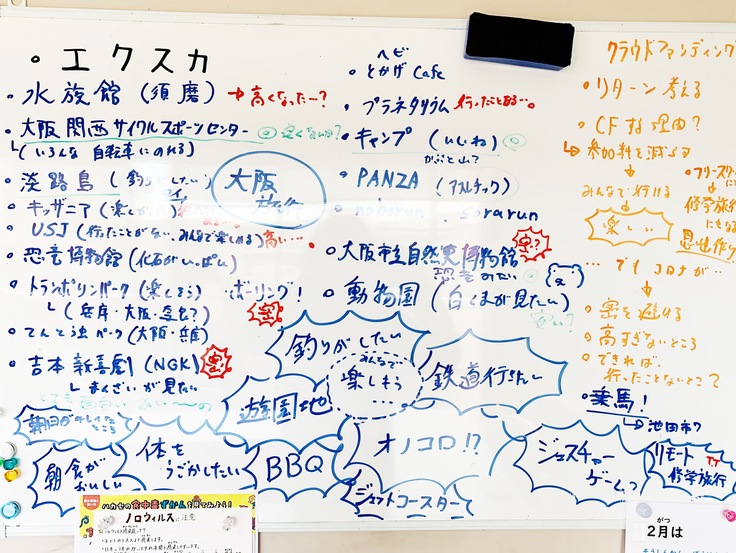 ・エクスカ
・水族館（須磨） 高くなった…？
・大阪関西サイクルスポーツセンター
└（いろんな自転車にのれる）
・淡路島（釣りがしたい）
・キッザニア（楽し
・USJ（行ったことがない、みんなで楽しめる）高い…
・恐竜博物館（化石がいっぱい）
・トランポリンパーク（楽しそう）
└（兵庫・大阪・
・てんとう虫パーク（大阪・兵庫）
・吉本新喜劇（NGK） 密!
└まんざいが見たい
大阪
旅行
ボーリング！
密
ヘビ
・とかげ Cafe
・プラネタリウム 行ったことある…。
・キャンプ（いいね）
かぶと山？
・PANZA（アスレチック）
・noborun ・sorarun
・大阪市立自然史博物館 密?
恐竜みたい
・動物園（白くまが見たい）
安い？
釣りがしたい
みんなで
楽しそう
…
鉄道行きたい
遊園地
朝日が
朝食が
おいしい
体を
うごかしたい
BBQ
オノコロ!?
ジェットコースター
ジェスチャー
ゲームっ
リモート
修学旅行
クラウドファンディング
・リターン考える
・CFする理由？
↳参加料を減らす
↓
みんなで行ける
↓
楽しい
フリースク
↓
修学旅行
にもなる
思い作り
…でもコロナが…
↓
・密を避ける
・高すぎないところ
・できれば
行ったことないとこ？
・乗馬！
↳池田市？
ハカセの食中毒ずかんを見てみよう！
ノロウィルスに注意
がつ
2月は